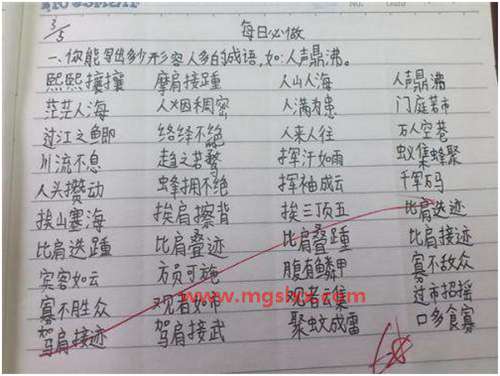 3/5
每日必做
一、你能写出多少形容人多的成语,如:人声鼎沸。
熙熙攘攘 摩肩接踵 人山人海 人声鼎沸
茫茫人海 人烟稠密 人满为患 门庭若市
过江之鲫 络绎不绝 人来人往 万人空巷
川流不息 趋之若鹜 挥汗如雨 蚁集蜂聚
人头攒动 蜂拥不绝 挥袖成云 千军万马
挨山塞海 挨肩擦背 挨三顶五 比肩迭迹
比肩迭踵 比肩叠迹 比肩叠踵 比肩接迹
宾客如云 方员可施 腹有鳞甲 寡不敌众
寡不胜众 观者如市 观者云集 过市招摇
驾肩接迹 驾肩接武 聚蚊成雷 口多食寡